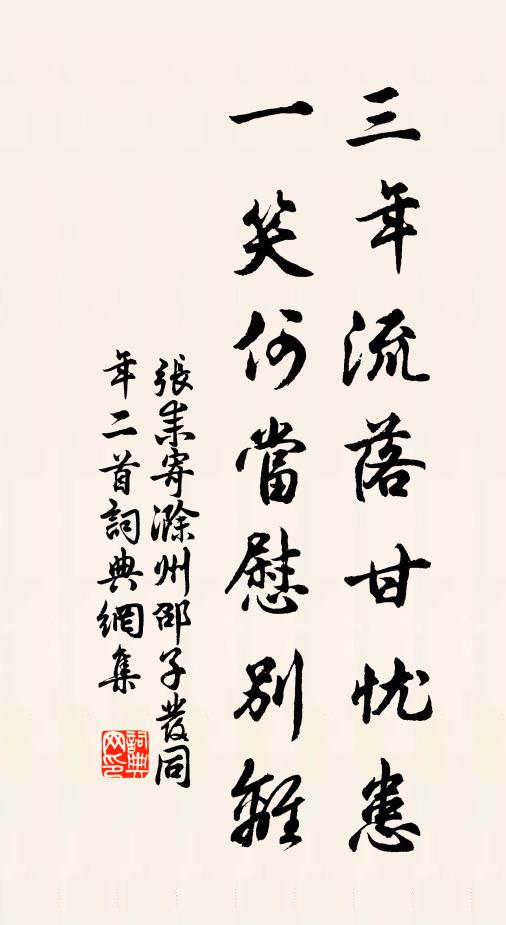 三年流落甘忧患
一笑何當慰别離
張耒寄滁州邵子發同
年二首詞典網集
詞典
网印